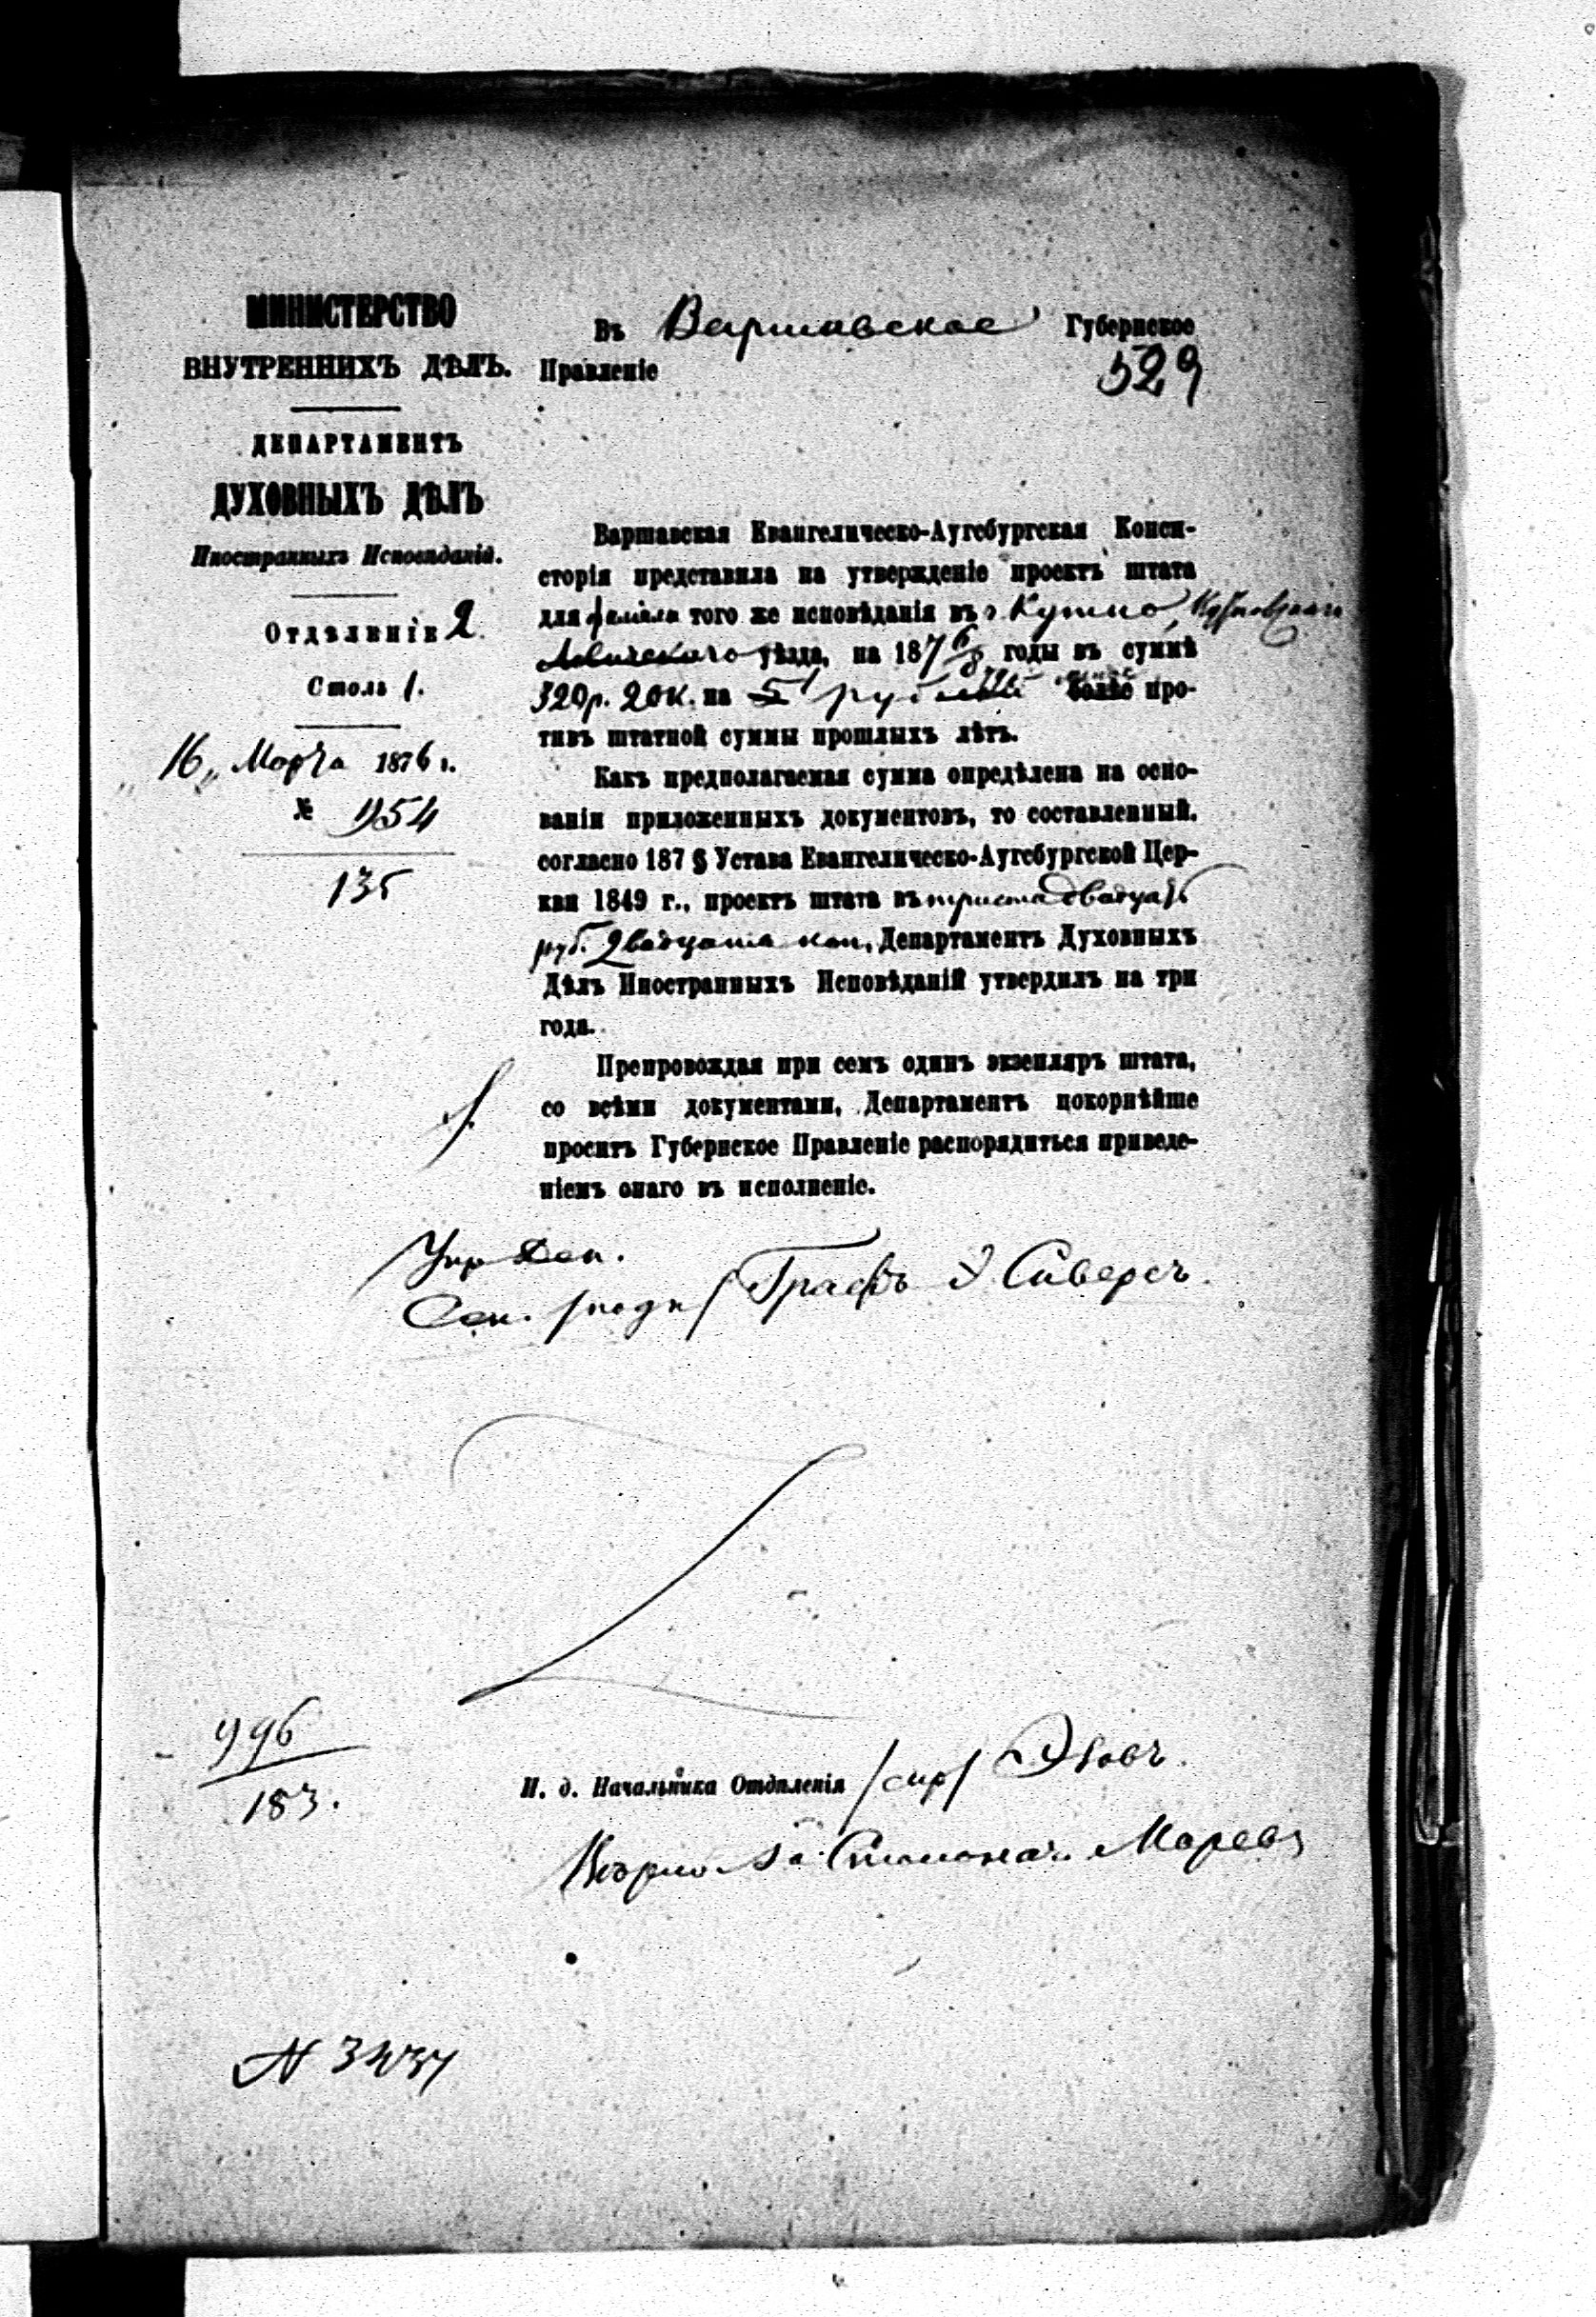 МИНИСТЕРСТВО
ВНУТРЕННИХЪ ДѢЛЪ.
ДЕПАРТАМЕНТЪ
ДУХОВНЫХЪ ДѢЛЪ
Иностранныхъ Исповѣданій.
Отдѣленіе 2.
Столъ 1.
"16" Марта 1876 г.
№ 954
135
Въ Варшавское Губернское
Правленіе
529
Варшавская Евангелическо-Аугсбургская Конси-
сторія представила на утвержденіе проектъ штата
для филіала того же исповѣданія въ г. Кутно, Кутновскаго
Ловичскаго уѣзда, на 187 6/8 годы въ суммѣ
320 р. 20 к. на 51 рубль болѣе про-
тивъ штатной суммы прошлыхъ лѣтъ.
Какъ предполагаемая сумма опредѣлена на осно-
ваніи приложенныхъ документовъ, то составленный,
согласно 187 § Устава Евангелическо-Аугсбургской Цер-
кви 1849 г., проектъ штата въ триста двадцать
руб. двадцать коп., Департаментъ Духовныхъ
Дѣлъ Иностранныхъ Исповѣданій утвердилъ на три
года.
Препровождая при семъ одинъ экземпляръ штата,
со всѣми документами, Департаментъ покорнѣйше
проситъ Губернское Правленіе распорядиться приведе-
ніемъ онаго въ исполненіе.
Упр Деп.
Сен. /подп/ Графъ Э Сиверсъ.
996
183.
И. д. Начальника Отдѣленія /скр/
Вѣрно За Столонач.
N 3437